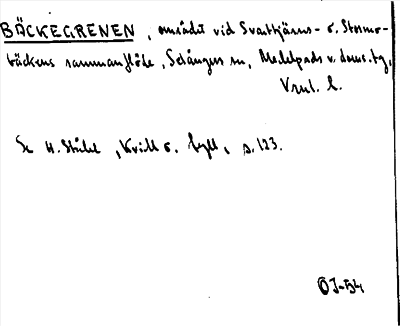 BÄCKEGRENEN, området vid Svartkjärns- o. Stormo-
bäckens sammanflöde, Selångers sn, Medelpads v. doms.bg,
Vnl. l.
Se H. Ståhl, Kvill o. tyll, s. 123.
OJ-54